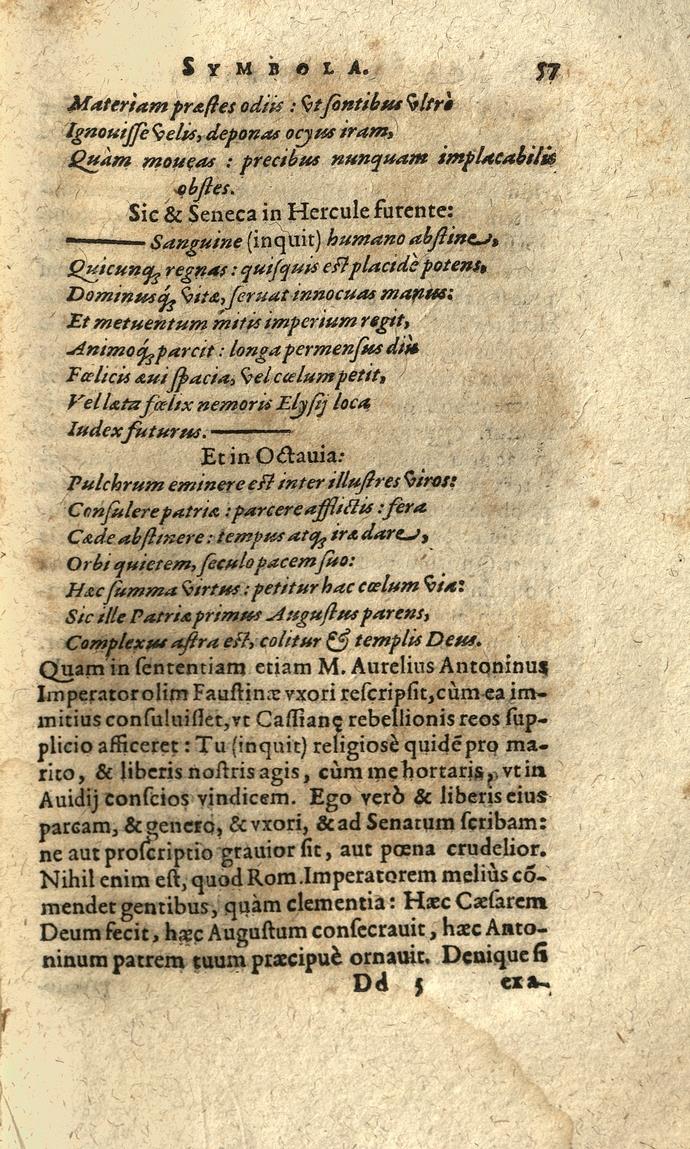 SYMBOLA. 57
Materiam præstes odiis : vt sontibus vltrò
Ignouisse velis, deponas ocyus iram,
Quàm moueas : precibus nunquam implacabilis
obstes.
Sic & Seneca in Hercule furente:
——— Sanguine (inquit) humano abstine,
Quicunq; regnas : quisquis est placidè potens,
Dominusq́; vitæ, seruat innocuas manus:
Et metuentum mitis imperium regit,
Animoq́; parcit : longa permensus diu
Fœlicis æui spacia, vel cœlum petit,
Vel læta fœlix nemoris Elysij loca
Iudex futurus. ———
Et in Octauia:
Pulchrum eminere est inter illustres viros:
Consulere patriæ : parcere afflictis : fera
Cæde abstinere : tempus atq; iræ dare,
Orbi quietem, seculo pacem suo:
Hæc summa virtus : petitur hac cœlum via:
Sic ille Patriæ primus Augustus parens,
Complexus astra est, colitur & templis Deus.
Quam in sententiam etiam M. Aurelius Antoninus
Imperator olim Faustinæ vxori rescripsit, cùm ea im-
mitius consuluisset, vt Cassianę rebellionis reos sup-
plicio afficeret : Tu (inquit) religiosè quidē pro ma-
rito, & liberis nostris agis, cùm me hortaris, vt in
Auidij conscios vindicem. Ego verò & liberis eius
parcam, & genero, & vxori, & ad Senatum scribam:
ne aut proscriptio grauior sit, aut pœna crudelior.
Nihil enim est, quod Rom. Imperatorem meliùs cō-
mendet gentibus, quàm clementia : Hæc Cæsarem
Deum fecit, hæc Augustum consecrauit, hæc Anto-
ninum patrem tuum præcipuè ornauit. Denique si
Dd 5 exa-